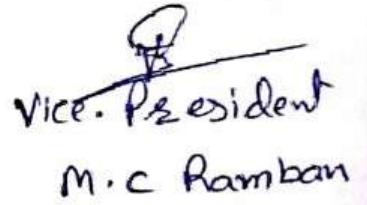 Vice. President
M.C Ramban